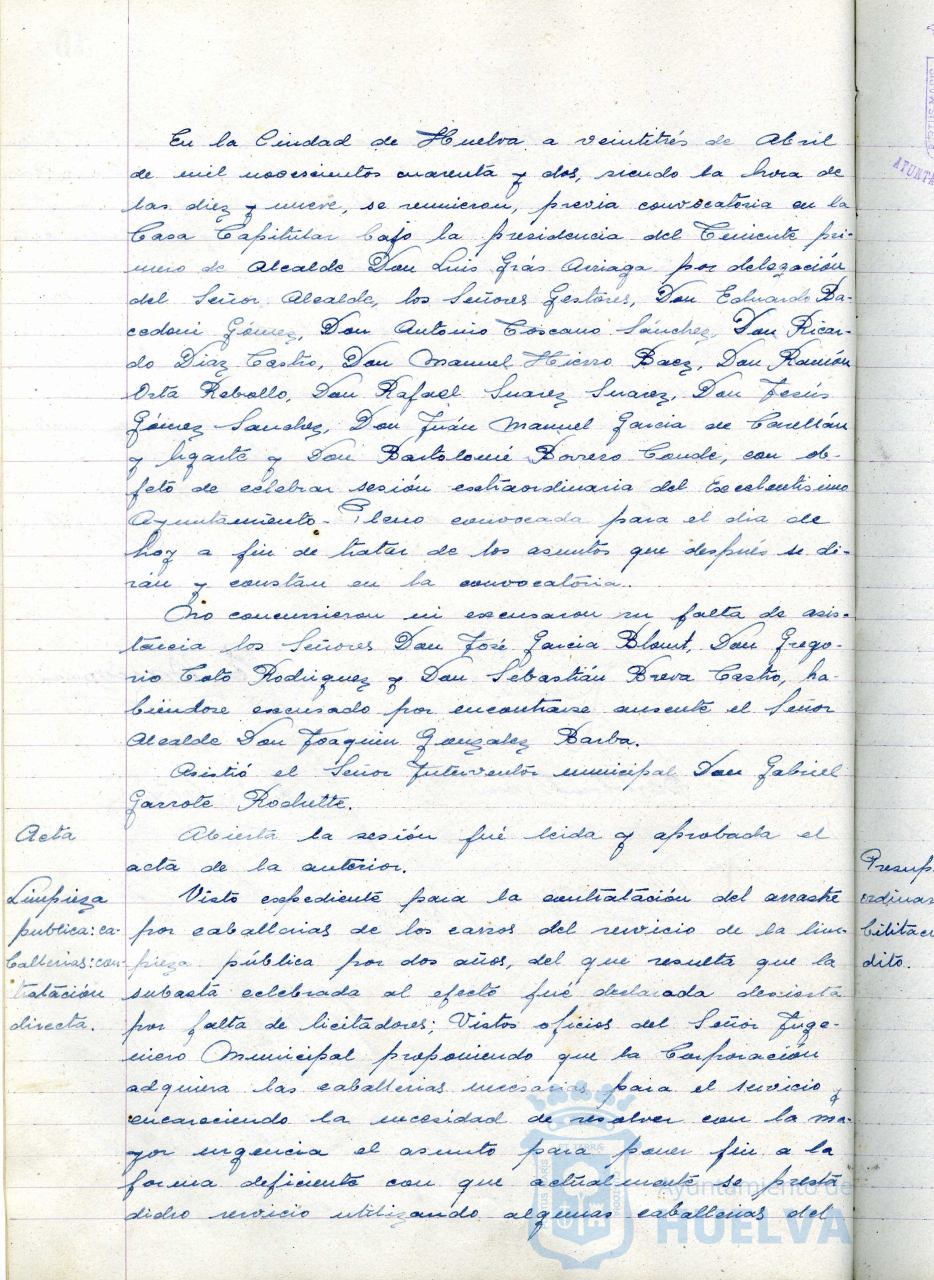 En la Ciudad de Huelva a veintitrés de Abril
de mil novescientos cuarenta y dos, siendo la hora de
las diez y nueve, se reunieron, previa convocatoria en la
Casa Capitular bajo la presidencia del Teniente pri-
mero de Alcalde Don Luis Grás Arriaga por delegación
del Señor Alcalde, los Señores Gestores, Don Eduardo Ba-
cedoni Gómez, Don Antonio Toscano Sánchez, Don Ricar-
do Diaz Castro, Don Manuel Hierro Baez, Don Ramón
Orta Rebollo, Don Rafael Suarez Suarez, Don Jesús
Gómez Sanchez, Don Juán Manuel Garcia de
y Ugarte y Don Bartolomé Borrero Conde, con ob-
jeto de celebrar sesión extraordinaria del Excelentisimo
Ayuntamiento-Pleno convocada para el dia de
hoy a fin de tratar de los asuntos que después se di-
rán y constan en la convocatoria.
No concurrieron ni excusaron su falta de asis-
tencia los Señores Don José Garcia Blount, Don Grego-
rio Toto Rodriguez y Don Sebastián Breva Castro, ha-
biendose excusado por encontrarse ausente el Señor
Alcalde Don Joaquin Gonzalez Barba.
Asistió el Señor Interventor municipal Don Gabriel
Garrote Rochette.
Acta
Abierta la sesión fué leida y aprobada el
acta de la anterior.
Limpieza
publica: ca-
ballerias: con-
tratación
directa.
Visto expediente para la contratación del arrastre
por caballerias de los carros del servicio de la lim-
pieza pública por dos años, del que resulta que la
subasta celebrada al efecto fué declarada desierta
por falta de licitadores; Vistos oficios del Señor Inge-
niero Municipal proponiendo que la Corporación
adquiera las caballerias necesarias para el servicio y
encareciendo la necesidad de resolver con la ma-
yor urgencia el asunto para poner fin a la
forma deficiente con que actualmente se presta
dicho servicio utilizando algunas caballerias del
Presup.
ordinar
bilitac
dito.
AYUNTA
Ayuntamiento de
HUELVA